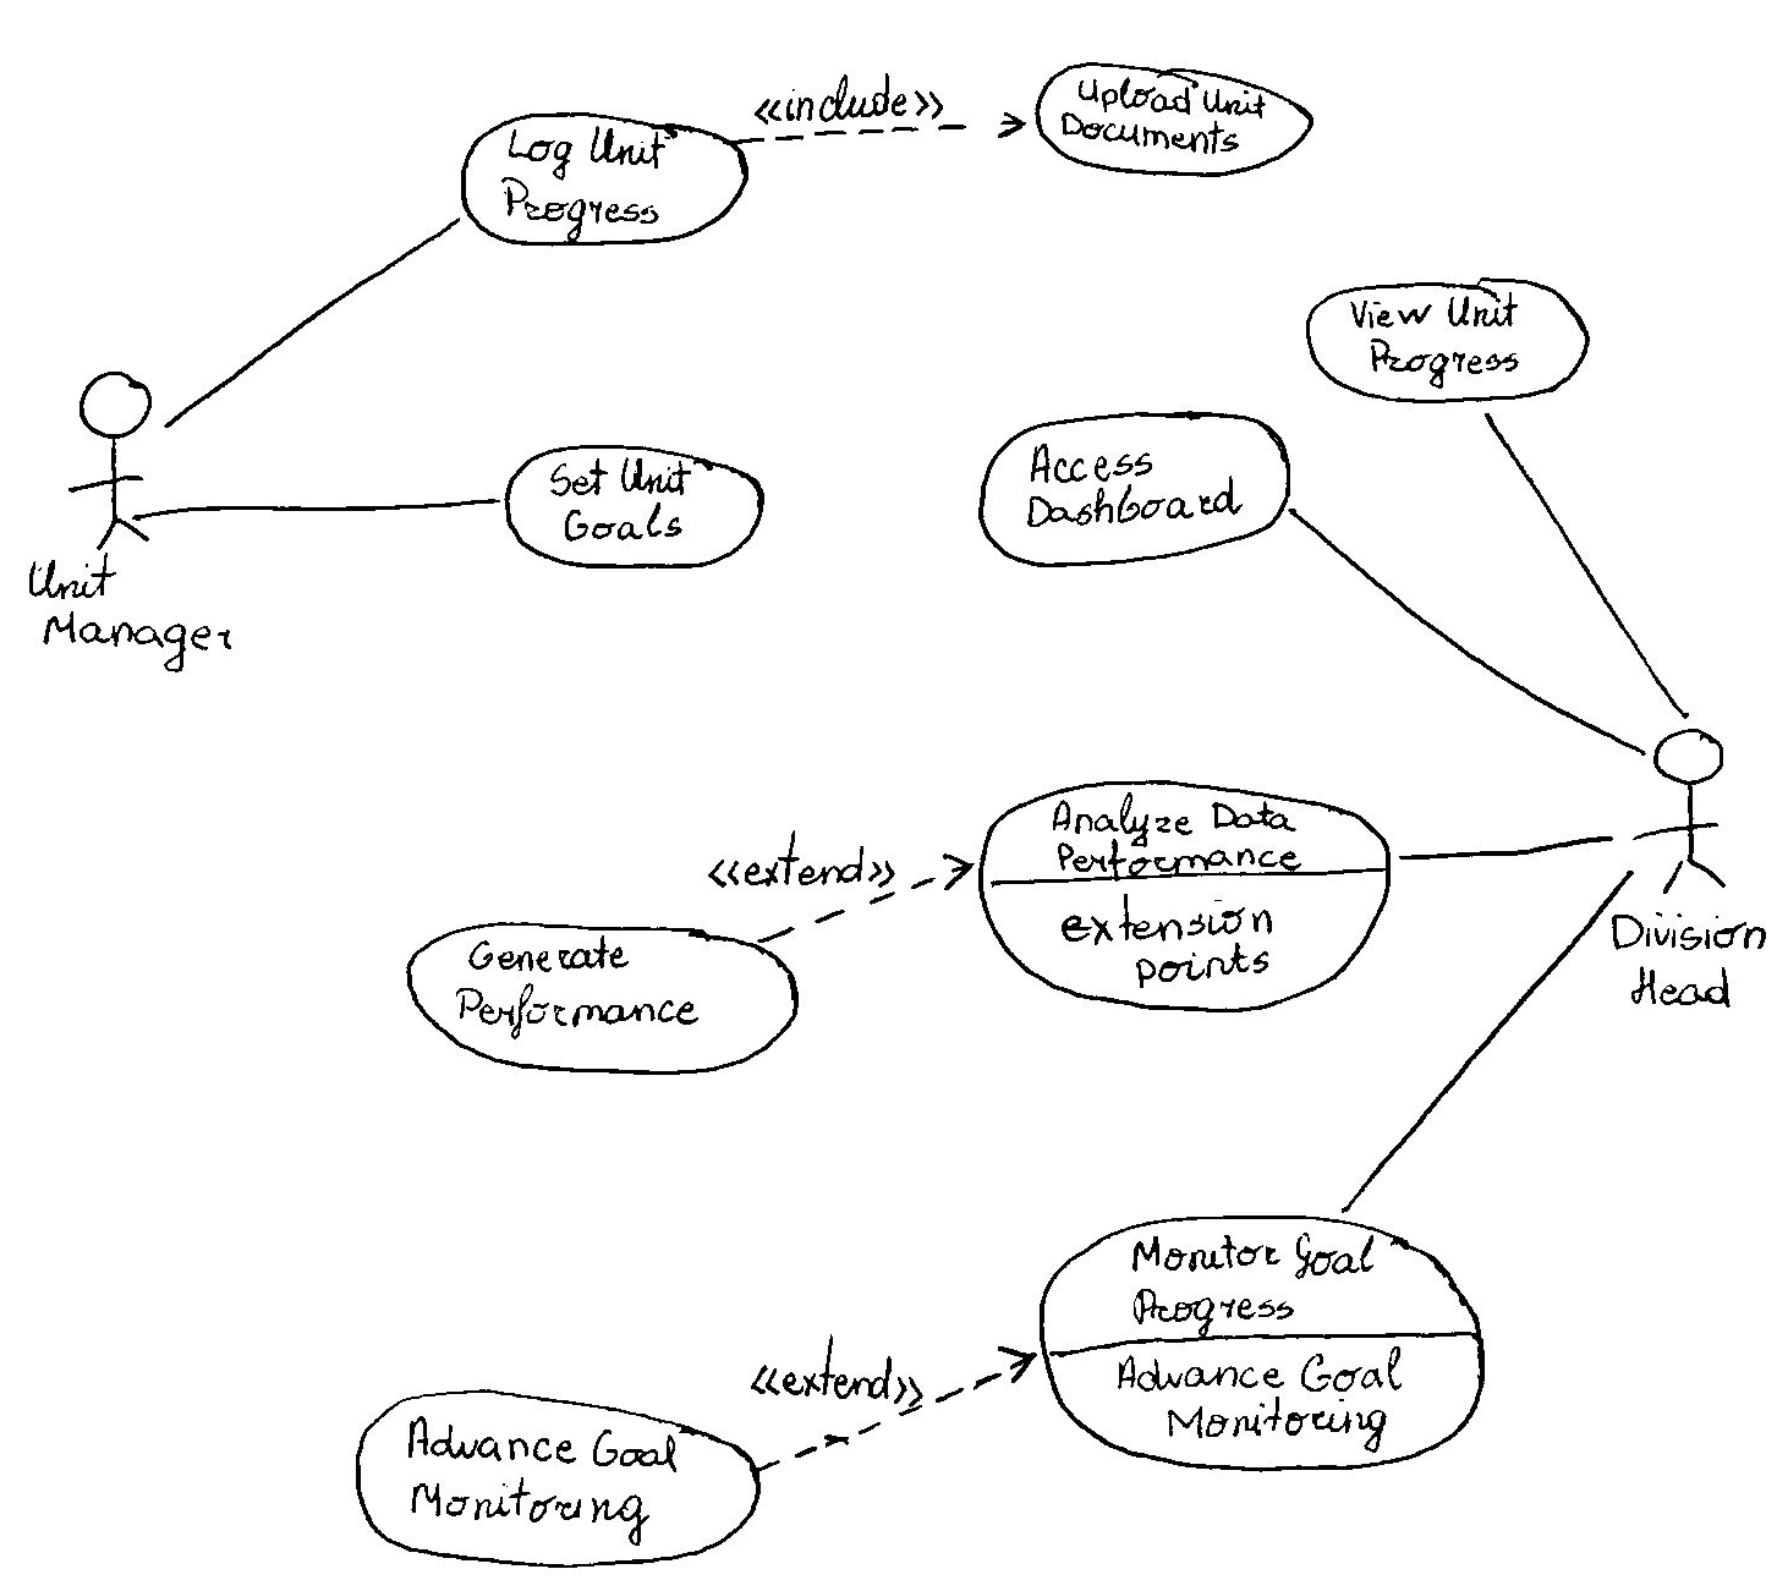 «include»
Upload Unit
Documents
Log Unit
Progress
View Unit
Progress
Access
Dashboard
Set Unit
Goals
Unit
Manager
Analyze Data
Performance
extension
points
«extend»
Generate
Performance
Division
Head
Monitor Goal
Progress
Advance Goal
Monitoring
«extend»
Advance Goal
Monitoring